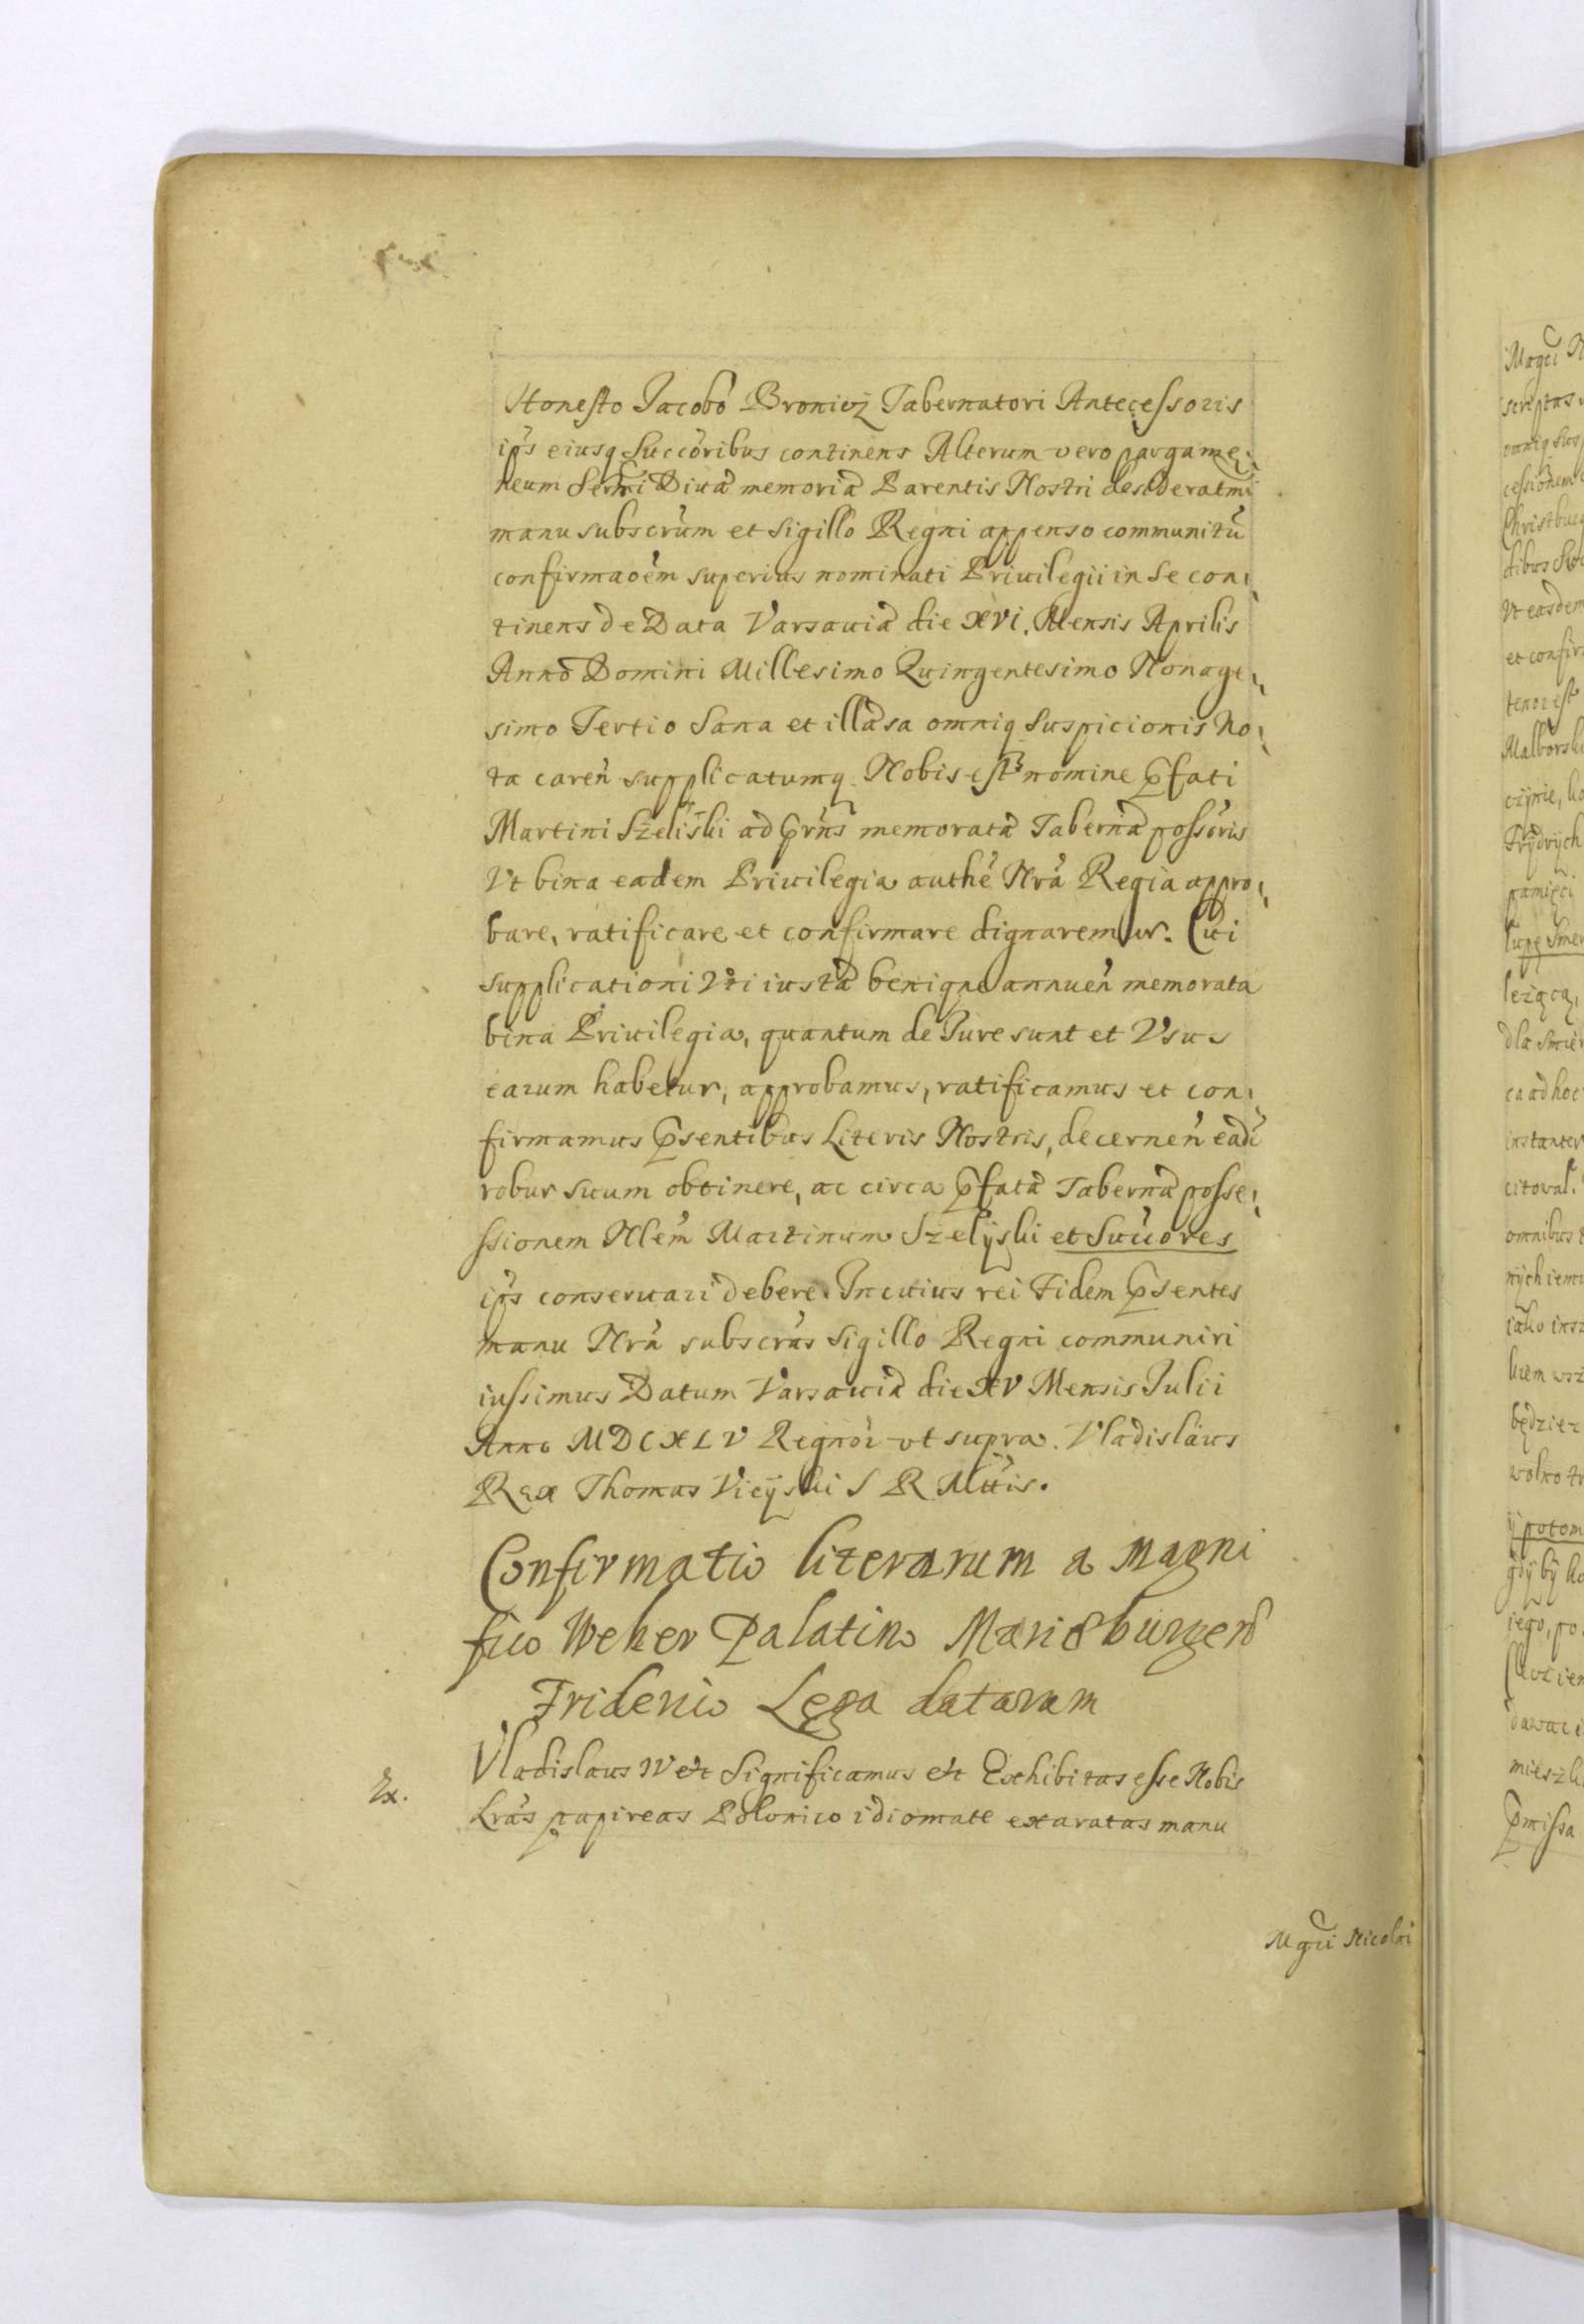 Honesto Jacobo Broniuz Tabernatori Antecessoris
ips eiusq Succoribus continens Alterum vero pargame:
neum Sermi Diuæ memoriæ Parentis Nostri desideratmi
manu subscrum et Sigillo Regni appenso communitu
confirmaoem superius nominati Priuilegii in se con:
tinens de Data Varsauiæ die XVI. Mensis Aprilis
Anno Domini Millesimo Quingentesimo Nonage:
simo Tertio Sana et illæsa omniq Suspicionis No:
ta caren supplicatumq Nobis est nomine pfati
Martini Szeliski ad prns memoratæ Tabernæ possoris
Vt bina eadem Priuilegia authe Nra Regia appro:
bare, ratificare et confirmare dignaremur. Cui
supplicationi Vti iustæ benigne annuen memorata
bina Priuilegia, quantum de Jure sunt et Vsus
earum habetur, approbamus, ratificamus et con:
firmamus psentibus Literis Nostris, decernen eadē
robur suum obtinere, ac circa pfatæ Tabernæ posse:
ssionem Nlem Martinum Szelyski et Succores
ips conseruari debere. In cuius rei Fidem psentes
manu Nra subscras Sigillo Regni communiri
iussimus Datum Varsauiæ die XV Mensis Julii
Anno MDCXLV Regnor vt supra. Vladislaus
Rex Thomas Vieyski S R Mttis.
Confirmatio literarum a Magni
fico Weher Palatino Mariæburgen
Friderico Lega datarum
Vladislaus IV etc Significamus etc Exhibitas esse Nobis
Ex.
Lras papireas Polonico idiomate exaratas manu
Mgci Nicolai